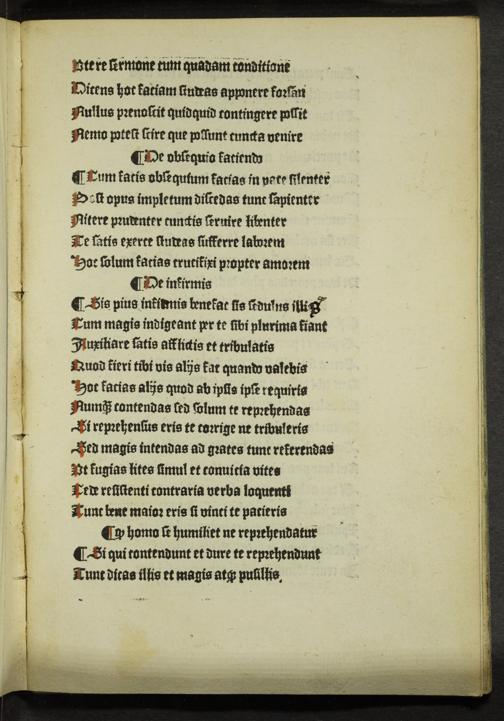 Utere sermone cum quadam conditione
Dicens hoc faciam studeas apponere forsan
Nullus prenoscit quidquid contingere possit
Nemo potest scire que possunt cuncta venire
¶ De obsequio faciendo
¶ Cum facis obsequium facias in pace silenter
Post opus impletum discedas tunc sapienter
Nitere prudenter cunctis seruire libenter
Te satis exerce studeas sufferre laborem
Hoc solum facias crucifixi propter amorem
¶ De infirmis
¶ Sis pius infirmis benefac sis sedulus illis
Cum magis indigeant per te sibi plurima fiant
Auxiliare satis afflictis et tribulatis
Quod fieri tibi vis alijs fac quando valebis
Hoc facias alijs quod ab ipsis ipse requiris
Numqꝫ contendas sed solum te reprehendas
Si reprehensus eris te corrige ne tribuleris
Sed magis intendas ad grates tunc referendas
Ut fugias lites simul et conuicia vites
Cede resistenti contraria verba loquenti
Tunc bene maior eris si vinci te pacieris
¶ Ꝙ homo se humiliet ne reprehendatur
¶ Si qui contendunt et dure te reprehendunt
Tunc dicas illis et magis atqꝫ pusillis.